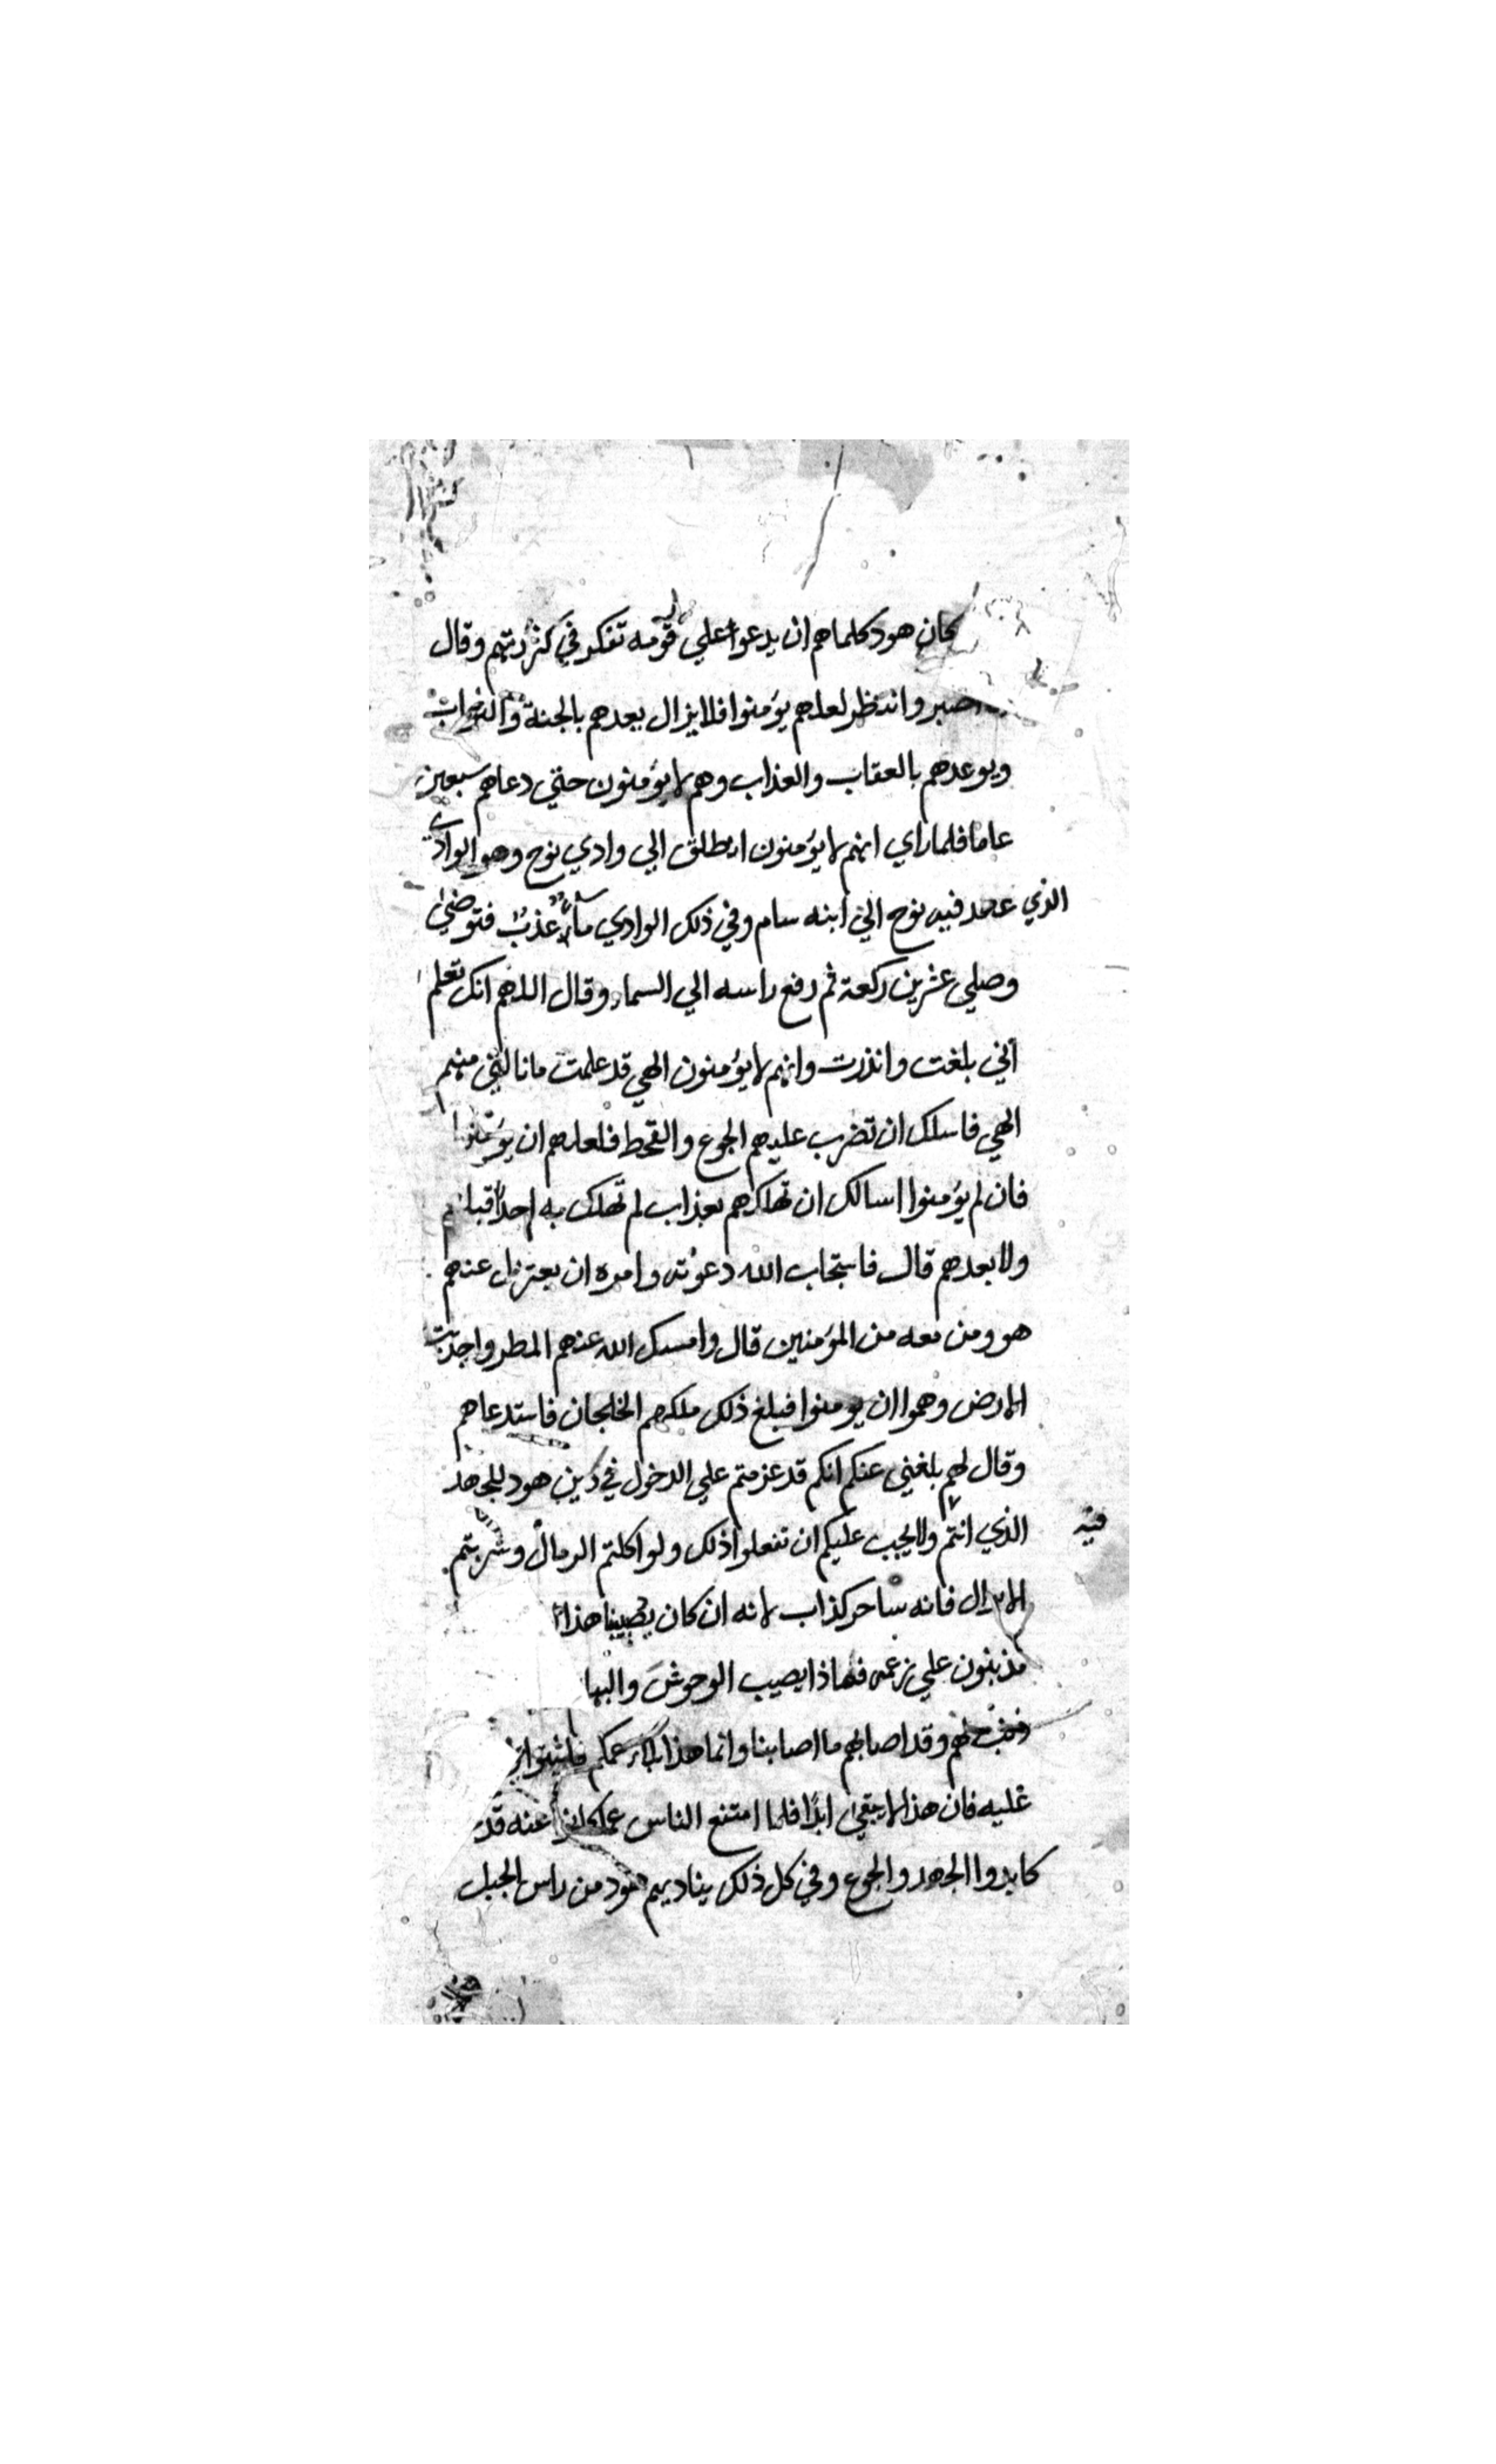 كان هود كلما هم ان يدعوا علي قومه تفكر في كثرتهم وقال
اصبر وانتظر لعلهم يؤمنوا فلا يزال يعدهم بالجنة والثواب
ويوعدهم بالعقاب والعذاب وهم لا يؤمنون حتي دعاهم سبعين
عاما فلما راي انهم لا يؤمنون انطلق الي وادي نوح وهو الوادي
الذي عهد فيه نوح الي ابنه سام وفي ذلك الوادي ماء عذب فتوضئ
وصلي عشرين ركعة ثم رفع راسه الي السماء وقال اللهم انك تعلم
اني بلغت وانذرت وانهم لا يؤمنون الهي قد علمت ما نالني منهم
الهي فاسلك ان تضرب عليهم الجوع والقحط فلعلهم ان يؤمنوا
فان لم يؤمنوا اسالك ان تهلكهم بعذاب لم تهلك به احدا قبلهم
ولا بعدهم قال فاستجاب الله دعوته وامره ان يعتزل عنهم
هو ومن معه من المؤمنين قال وامسك الله عنهم المطر واجدبت
الارض وهموا ان يومنوا فبلغ ذلك ملكهم الخلجان فاستدعاهم
وقال لهم بلغني عنكم انكم قد عزمتم علي الدخول في دين هود للجهد
الذي انتم فيه ولا يجب عليكم ان تفعلوا ذلك ولو اكلتم الرمال وشربتم
فانه ساحر كذاب لانه ان كان يصيبنا هذا
مذنبون علي زعمه فماذا يصيب الوحوش والبها
لهم وقد اصابهم ما اصابنا وانما هذا عمكم فاثبتوا
عليه فان هذا لا يبقي ابدا فلما امتنع الناس عنه قد
كابدوا الجهد والجوع وفي كل ذلك يناديهم هود من راس الجبل